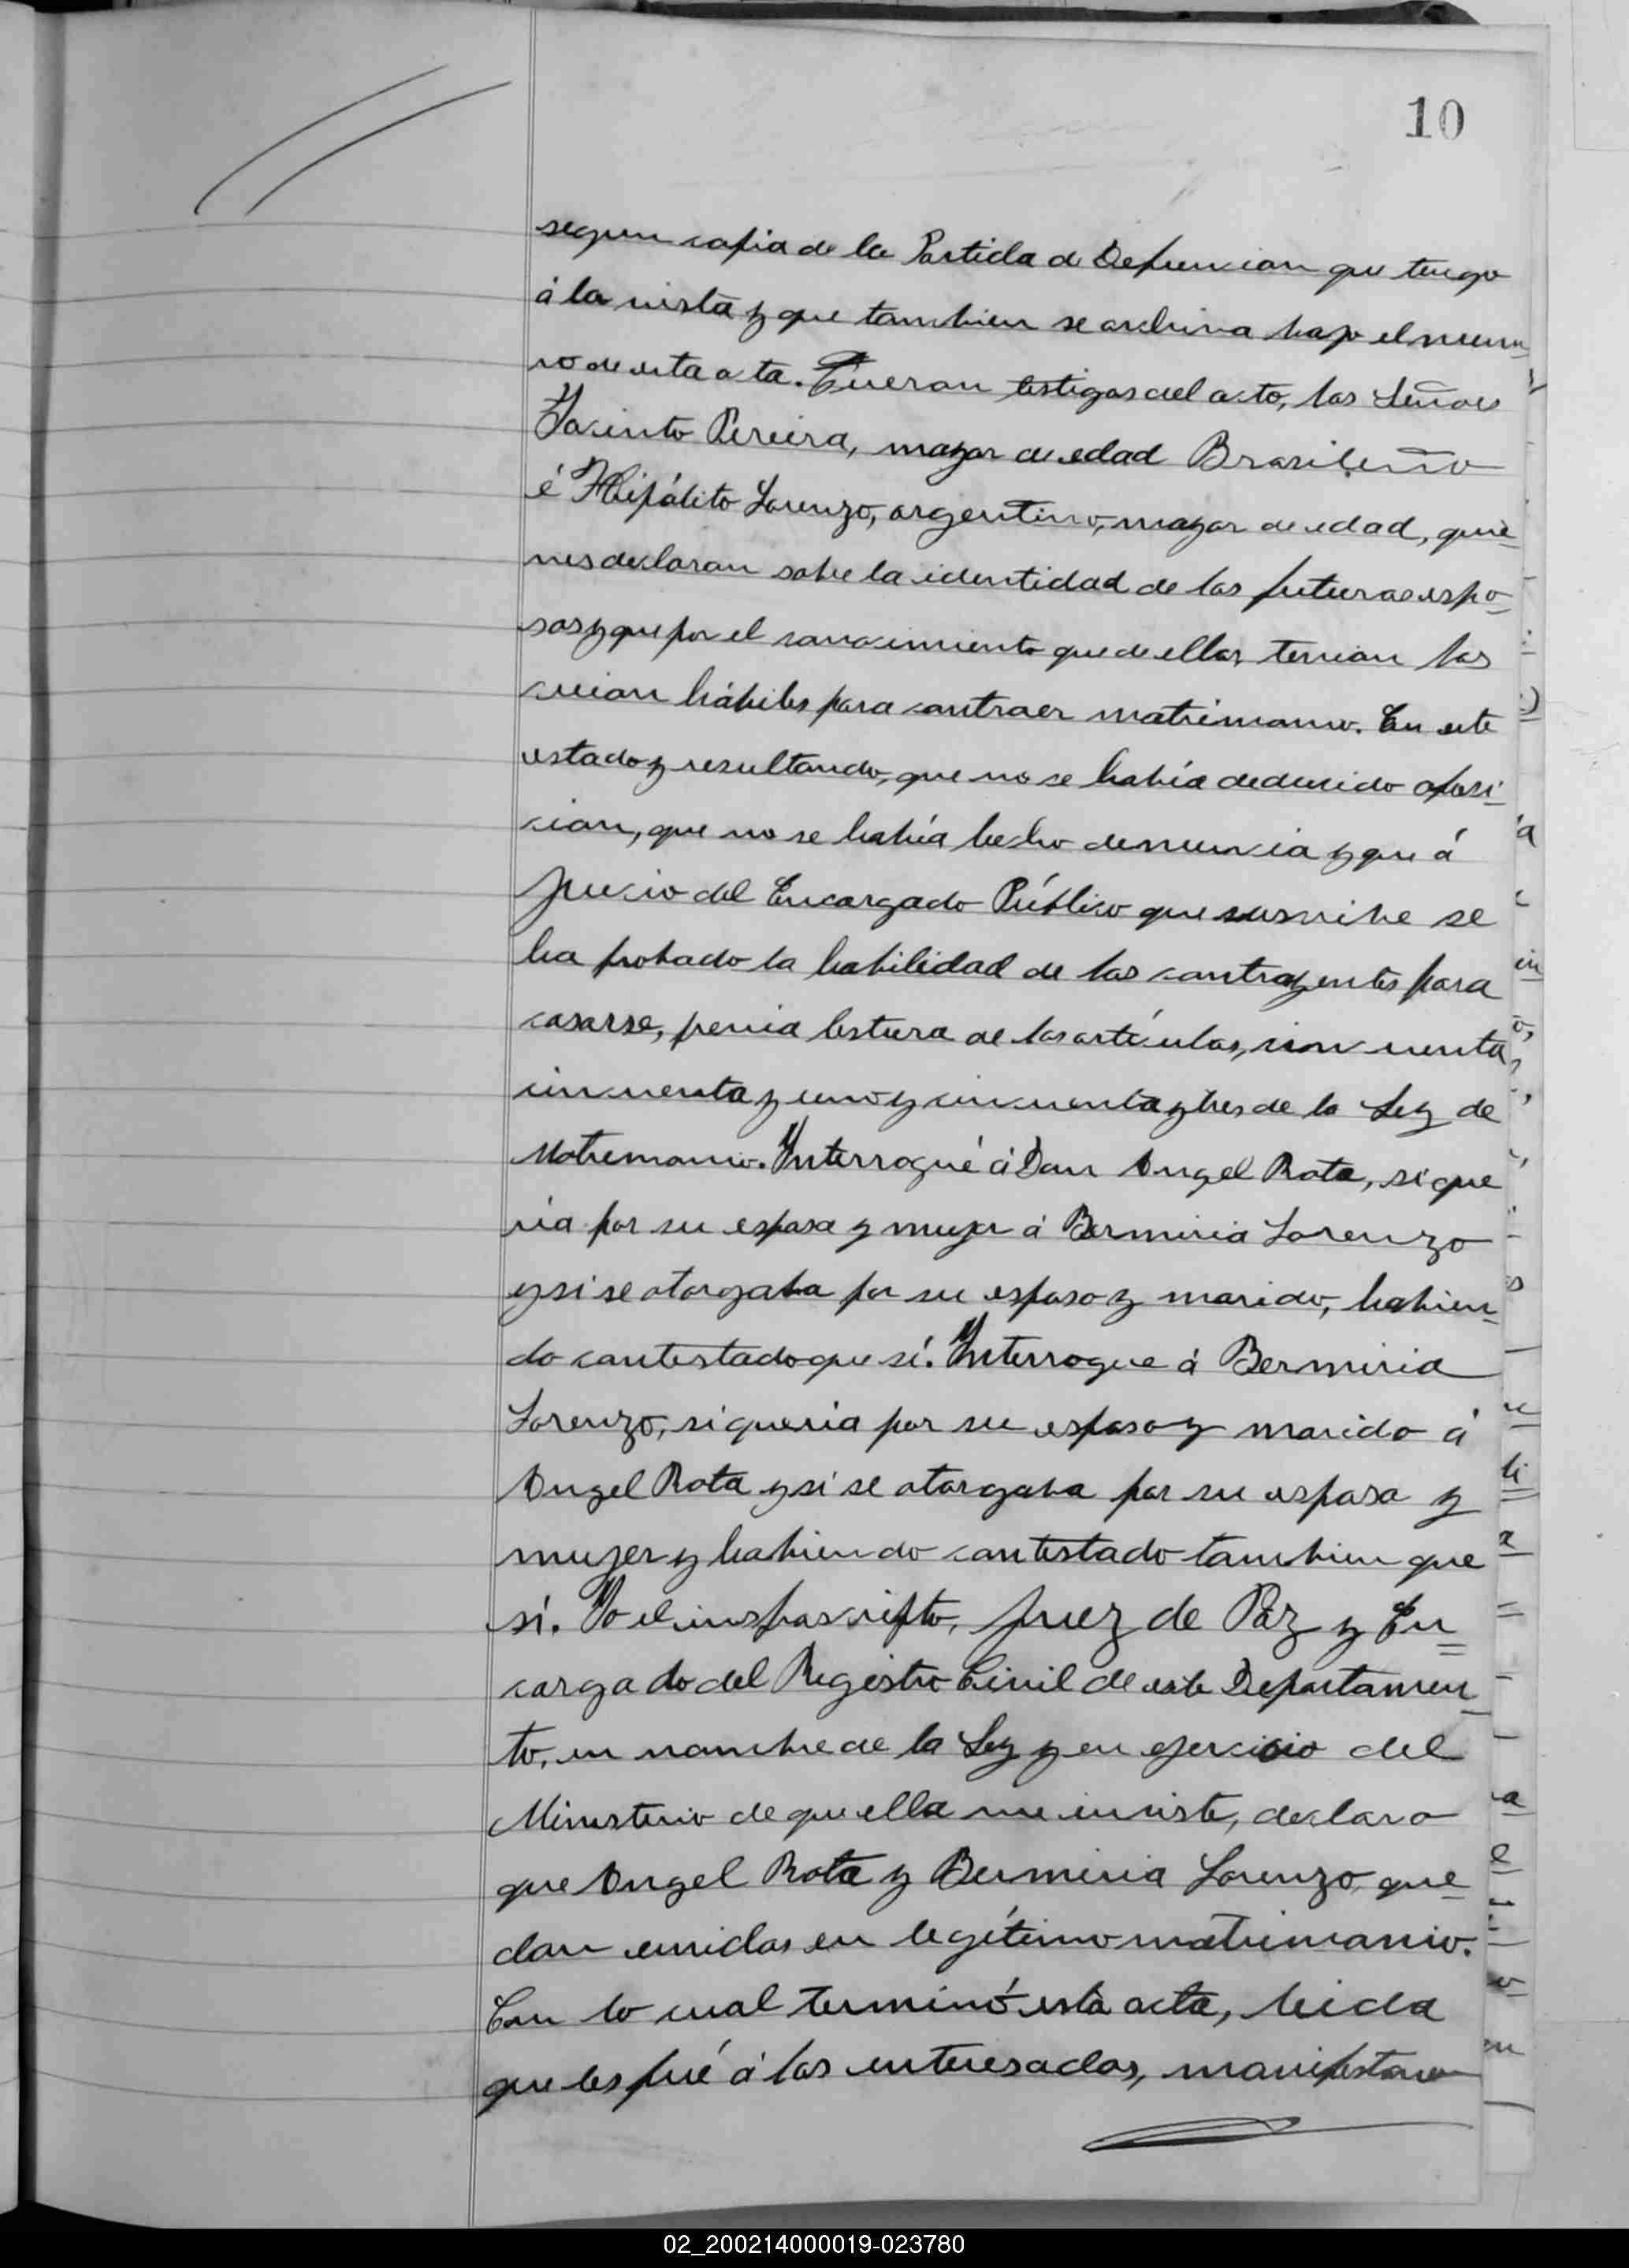 10
segun copia de la Partida de Defuncion que tengo
á la vista y que tambien se archiva bajo el nume
ro de esta acta. Fueron testigos del acto, los Señores
Jacinto Pereira, mayor de edad Brasileño
é Hipólito Lorenzo, argentino, mayor de edad, quie-
nes declaran sobre la identidad de los futuros espo-
sos y que por el conocimiento que de ellos tenian los
creian hábiles para contraer matrimonio. En este
estado y resultando, que no se había deducido oposi-
cion, que no se había hecho denuncia y que á
juicio del Encargado Público que suscribe se
ha probado la habilidad de los contrayentes para
casarse, previa lectura de los artículos, cincuenta
cincuenta y uno y cincuenta y tres de la Ley de
Matrimonio. Interrogué á Don Angel Rota, si que
ria por su esposa y mujer á Bermiria Lorenzo
y si se otorgaba por su esposo y marido, habien-
do contestado que sí. Interrogue á Bermiria
Lorenzo, si queria por su esposo y marido á
Angel Rota y si se otorgaba por su esposa y
mujer y habiendo contestado tambien que
sí. Yo el infrascripto, Juez de Paz y En=
cargado del Registro Civil de este Departamen-
to, en nombre de la Ley y en ejercicio del
Ministerio de que ella me inviste, declaro
que Angel Rota y Bermiria Lorenzo, que-
dan unidos en legítimo matrimonio.
Con lo cual terminó esta acta, leida
que les fué á los interesados, manifestaron
02_200214000019-023780